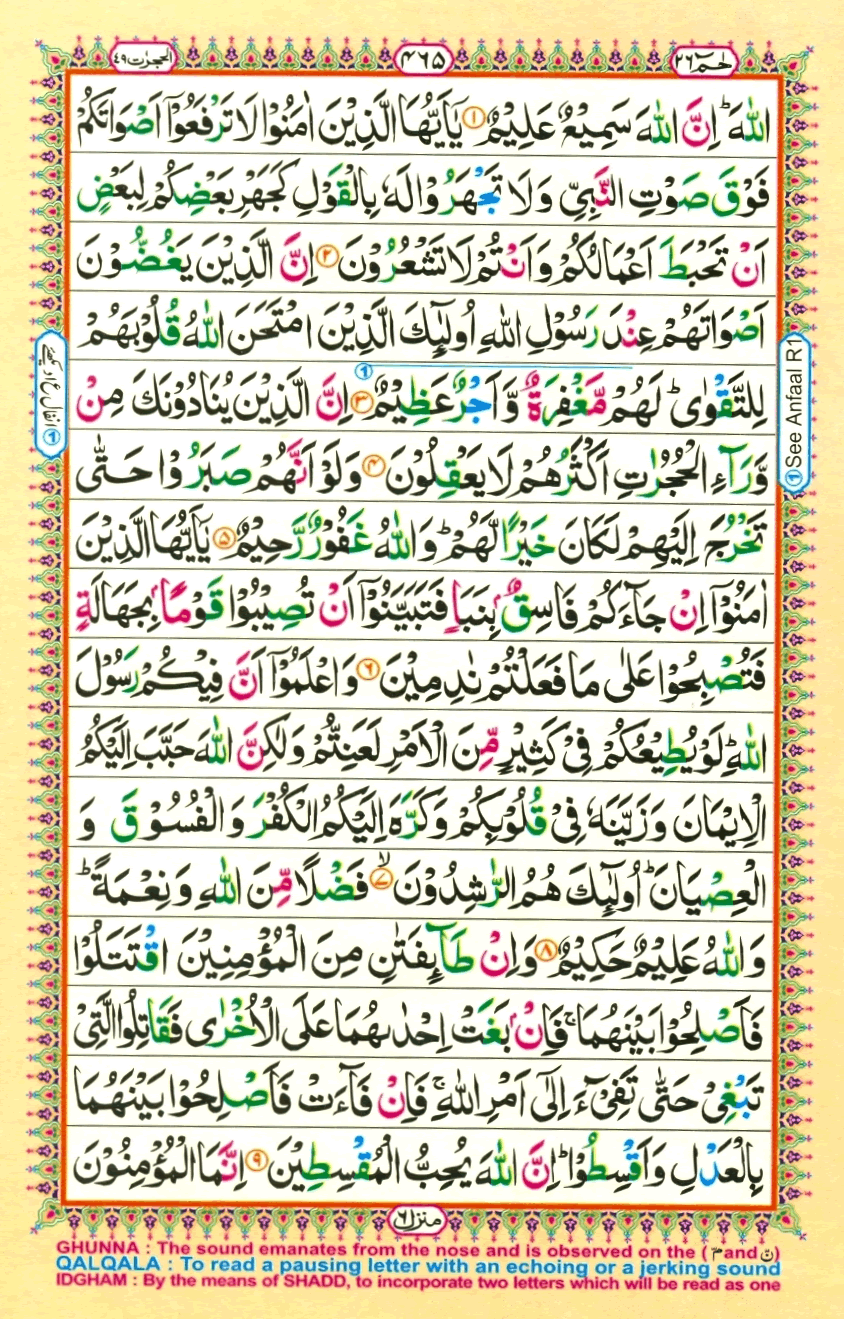 حٰمٓ ٢٦
٤٦٥
الحجرٰت ٤٩
اللّٰهَ ؕ اِنَّ اللّٰهَ سَمِيْعٌ عَلِيْمٌ ۝١ يٰٓاَيُّهَا الَّذِيْنَ اٰمَنُوْا لَا تَرْفَعُوْٓا اَصْوَاتَكُمْ
فَوْقَ صَوْتِ النَّبِيِّ وَلَا تَجْهَرُوْا لَهٗ بِالْقَوْلِ كَجَهْرِ بَعْضِكُمْ لِبَعْضٍ
اَنْ تَحْبَطَ اَعْمَالُكُمْ وَاَنْتُمْ لَا تَشْعُرُوْنَ ۝٢ اِنَّ الَّذِيْنَ يَغُضُّوْنَ
اَصْوَاتَهُمْ عِنْدَ رَسُوْلِ اللّٰهِ اُولٰٓئِكَ الَّذِيْنَ امْتَحَنَ اللّٰهُ قُلُوْبَهُمْ
لِلتَّقْوٰى ؕ لَهُمْ مَّغْفِرَةٌ وَّاَجْرٌ عَظِيْمٌ ۝٣ اِنَّ الَّذِيْنَ يُنَادُوْنَكَ مِنْ
وَّرَآءِ الْحُجُرٰتِ اَكْثَرُهُمْ لَا يَعْقِلُوْنَ ۝٤ وَلَوْ اَنَّهُمْ صَبَرُوْا حَتّٰى
تَخْرُجَ اِلَيْهِمْ لَكَانَ خَيْرًا لَّهُمْ ؕ وَاللّٰهُ غَفُوْرٌ رَّحِيْمٌ ۝٥ يٰٓاَيُّهَا الَّذِيْنَ
اٰمَنُوْٓا اِنْ جَآءَكُمْ فَاسِقٌۢ بِنَبَاٍ فَتَبَيَّنُوْٓا اَنْ تُصِيْبُوْا قَوْمًاۢ بِجَهَالَةٍ
فَتُصْبِحُوْا عَلٰى مَا فَعَلْتُمْ نٰدِمِيْنَ ۝٦ وَاعْلَمُوْٓا اَنَّ فِيْكُمْ رَسُوْلَ
اللّٰهِ ؕ لَوْ يُطِيْعُكُمْ فِيْ كَثِيْرٍ مِّنَ الْاَمْرِ لَعَنِتُّمْ وَلٰكِنَّ اللّٰهَ حَبَّبَ اِلَيْكُمُ
الْاِيْمَانَ وَزَيَّنَهٗ فِيْ قُلُوْبِكُمْ وَكَرَّهَ اِلَيْكُمُ الْكُفْرَ وَالْفُسُوْقَ وَ
الْعِصْيَانَ ؕ اُولٰٓئِكَ هُمُ الرّٰشِدُوْنَ ۝٧ۙ فَضْلًا مِّنَ اللّٰهِ وَنِعْمَةً ؕ
وَاللّٰهُ عَلِيْمٌ حَكِيْمٌ ۝٨ وَاِنْ طَآئِفَتٰنِ مِنَ الْمُؤْمِنِيْنَ اقْتَتَلُوْا
فَاَصْلِحُوْا بَيْنَهُمَا ۚ فَاِنْۢ بَغَتْ اِحْدٰىهُمَا عَلَى الْاُخْرٰى فَقَاتِلُوا الَّتِيْ
تَبْغِيْ حَتّٰى تَفِيْٓءَ اِلٰٓى اَمْرِ اللّٰهِ ۚ فَاِنْ فَآءَتْ فَاَصْلِحُوْا بَيْنَهُمَا
بِالْعَدْلِ وَاَقْسِطُوْا ؕ اِنَّ اللّٰهَ يُحِبُّ الْمُقْسِطِيْنَ ۝٩ اِنَّمَا الْمُؤْمِنُوْنَ
① See Anfaal R1
① انفال ع ا دیکھیے
منزل ٦
GHUNNA : The sound emanates from the nose and is observed on the ( مّ and نّ )
QALQALA : To read a pausing letter with an echoing or a jerking sound
IDGHAM : By the means of SHADD, to incorporate two letters which will be read as one